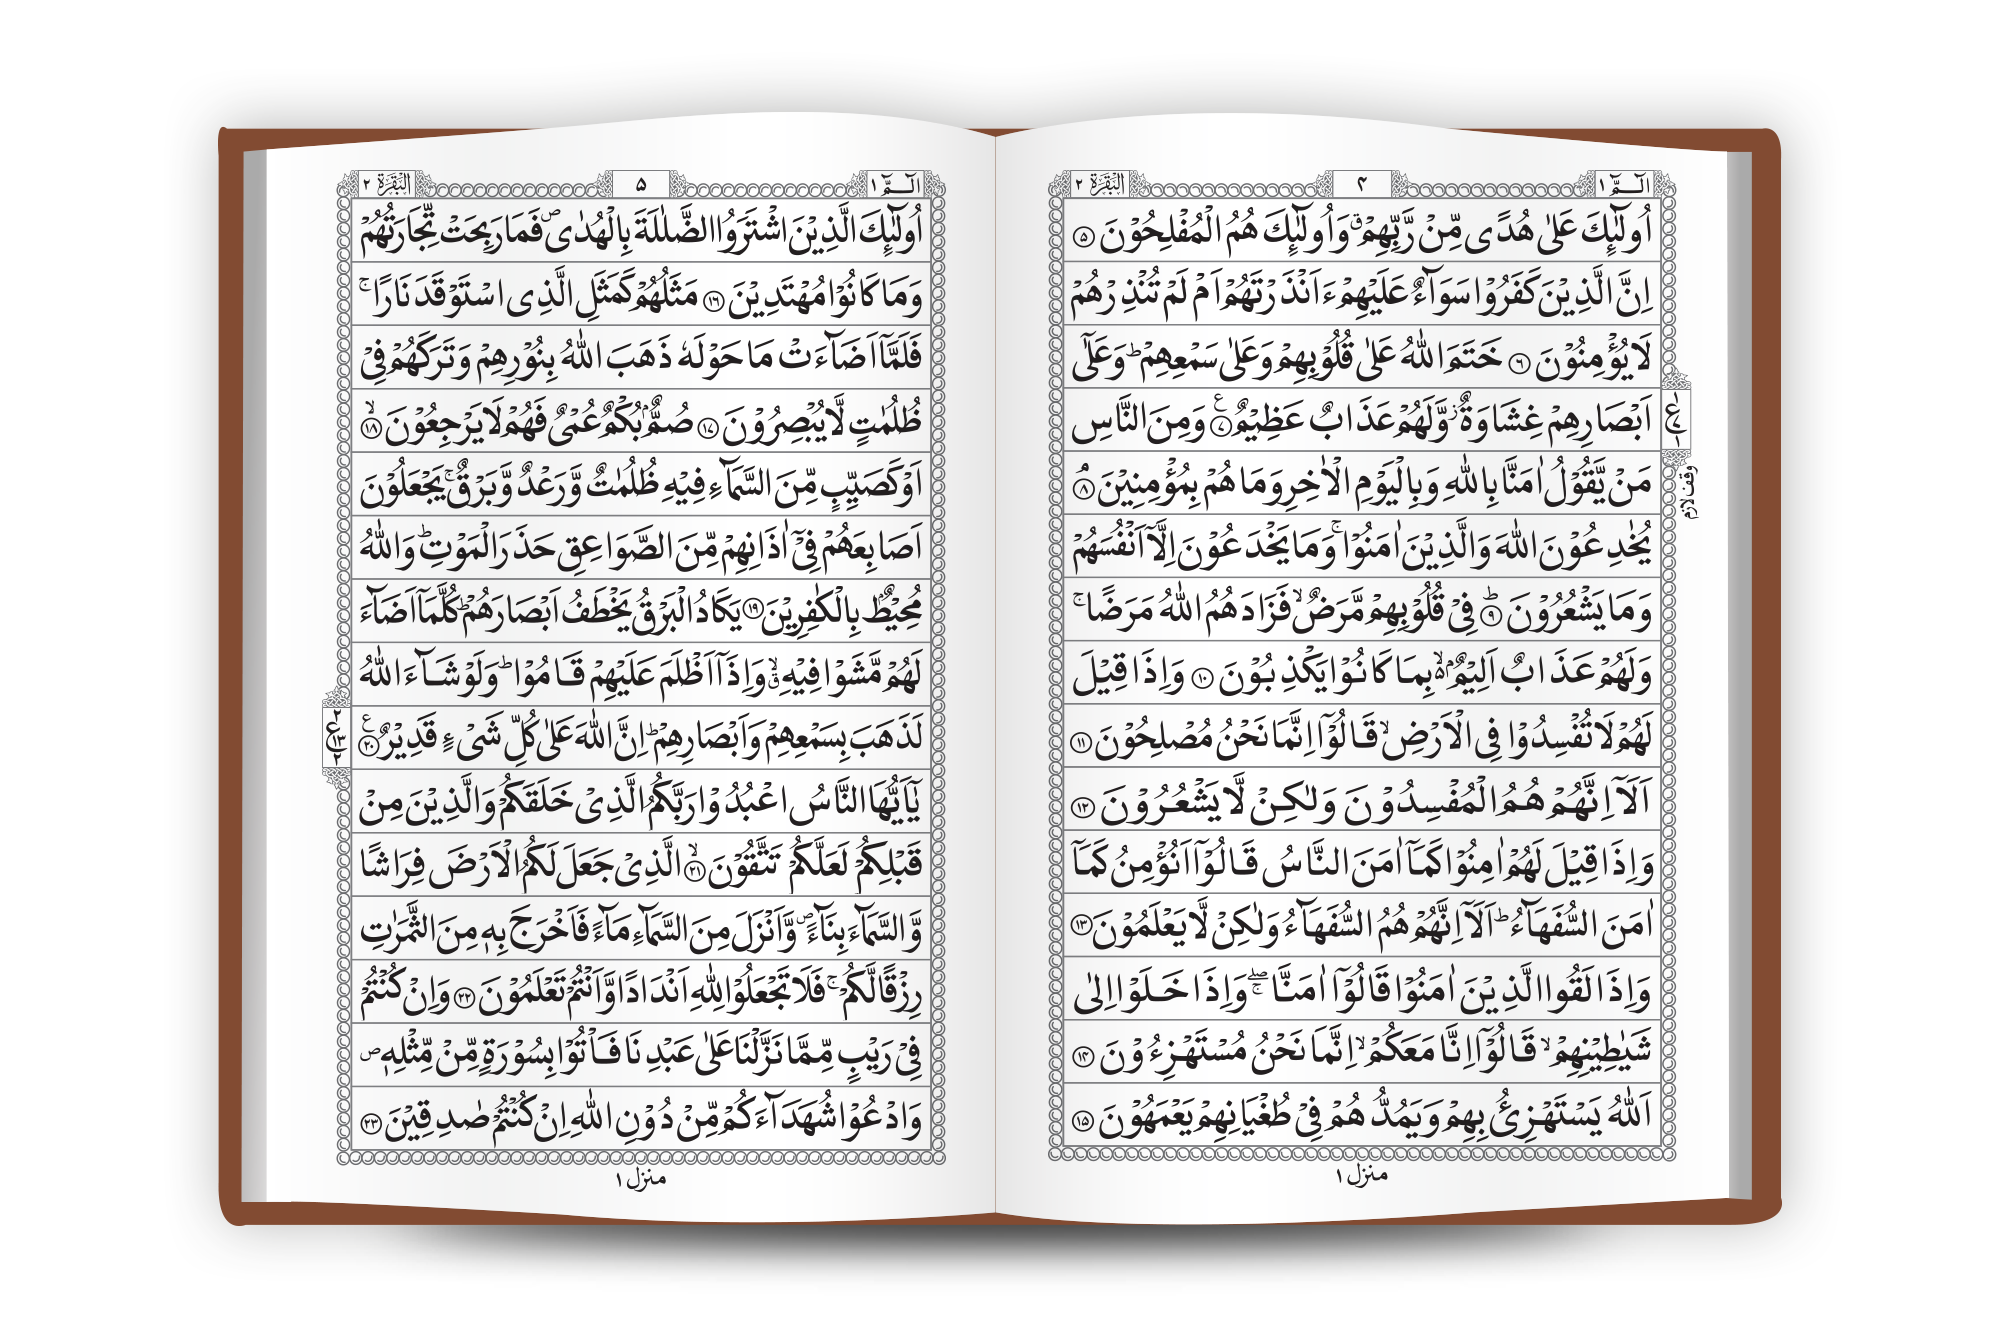 الٓـمّٓ ١
۴
البقرة ٢
اُولٰٓئِكَ عَلٰى هُدًى مِّنْ رَّبِّهِمْ ۗ وَاُولٰٓئِكَ هُمُ الْمُفْلِحُوْنَ ۝۵
اِنَّ الَّذِيْنَ كَفَرُوْا سَوَآءٌ عَلَيْهِمْ ءَاَنْذَرْتَهُمْ اَمْ لَمْ تُنْذِرْهُمْ
لَا يُؤْمِنُوْنَ ۝۶ خَتَمَ اللّٰهُ عَلٰى قُلُوْبِهِمْ وَعَلٰى سَمْعِهِمْ ؕ وَعَلٰٓى
اَبْصَارِهِمْ غِشَاوَةٌ ۫ وَّلَهُمْ عَذَابٌ عَظِيْمٌ ۝۷ ع وَمِنَ النَّاسِ
ع
١
٧
١
مَنْ يَّقُوْلُ اٰمَنَّا بِاللّٰهِ وَبِالْيَوْمِ الْاٰخِرِ وَمَا هُمْ بِمُؤْمِنِيْنَ ۝۸ ۘ
وقف لازم
يُخٰدِعُوْنَ اللّٰهَ وَالَّذِيْنَ اٰمَنُوْا ۚ وَمَا يَخْدَعُوْنَ اِلَّآ اَنْفُسَهُمْ
وَمَا يَشْعُرُوْنَ ۝۹ ؕ فِيْ قُلُوْبِهِمْ مَّرَضٌ ۙ فَزَادَهُمُ اللّٰهُ مَرَضًا ۚ
وَلَهُمْ عَذَابٌ اَلِيْمٌۢ ۙ۬ بِمَا كَانُوْا يَكْذِبُوْنَ ۝۱۰ وَاِذَا قِيْلَ
لَهُمْ لَا تُفْسِدُوْا فِي الْاَرْضِ ۙ قَالُوْٓا اِنَّمَا نَحْنُ مُصْلِحُوْنَ ۝۱۱
اَلَآ اِنَّهُمْ هُمُ الْمُفْسِدُوْنَ وَلٰكِنْ لَّا يَشْعُرُوْنَ ۝۱۲
وَاِذَا قِيْلَ لَهُمْ اٰمِنُوْا كَمَآ اٰمَنَ النَّاسُ قَالُوْٓا اَنُؤْمِنُ كَمَآ
اٰمَنَ السُّفَهَآءُ ؕ اَلَآ اِنَّهُمْ هُمُ السُّفَهَآءُ وَلٰكِنْ لَّا يَعْلَمُوْنَ ۝۱۳
وَاِذَا لَقُوا الَّذِيْنَ اٰمَنُوْا قَالُوْٓا اٰمَنَّا ۖۚ وَاِذَا خَلَوْا اِلٰى
شَيٰطِيْنِهِمْ ۙ قَالُوْٓا اِنَّا مَعَكُمْ ۙ اِنَّمَا نَحْنُ مُسْتَهْزِءُوْنَ ۝۱۴
اَللّٰهُ يَسْتَهْزِئُ بِهِمْ وَيَمُدُّهُمْ فِيْ طُغْيَانِهِمْ يَعْمَهُوْنَ ۝۱۵
منزل ١
الٓـمّٓ ١
۵
البقرة ٢
اُولٰٓئِكَ الَّذِيْنَ اشْتَرَوُا الضَّلٰلَةَ بِالْهُدٰى ۪ فَمَا رَبِحَتْ تِّجَارَتُهُمْ
وَمَا كَانُوْا مُهْتَدِيْنَ ۝۱۶ مَثَلُهُمْ كَمَثَلِ الَّذِى اسْتَوْقَدَ نَارًا ۚ
فَلَمَّآ اَضَآءَتْ مَا حَوْلَهٗ ذَهَبَ اللّٰهُ بِنُوْرِهِمْ وَتَرَكَهُمْ فِيْ
ظُلُمٰتٍ لَّا يُبْصِرُوْنَ ۝۱۷ صُمٌّۢ بُكْمٌ عُمْيٌ فَهُمْ لَا يَرْجِعُوْنَ ۝۱۸ ۙ
اَوْ كَصَيِّبٍ مِّنَ السَّمَآءِ فِيْهِ ظُلُمٰتٌ وَّرَعْدٌ وَّبَرْقٌ ۚ يَجْعَلُوْنَ
اَصَابِعَهُمْ فِيْٓ اٰذَانِهِمْ مِّنَ الصَّوَاعِقِ حَذَرَ الْمَوْتِ ؕ وَاللّٰهُ
مُحِيْطٌۢ بِالْكٰفِرِيْنَ ۝۱۹ يَكَادُ الْبَرْقُ يَخْطَفُ اَبْصَارَهُمْ ؕ كُلَّمَآ اَضَآءَ
لَهُمْ مَّشَوْا فِيْهِ ۙۗ وَاِذَآ اَظْلَمَ عَلَيْهِمْ قَامُوْا ؕ وَلَوْ شَآءَ اللّٰهُ
لَذَهَبَ بِسَمْعِهِمْ وَاَبْصَارِهِمْ ؕ اِنَّ اللّٰهَ عَلٰى كُلِّ شَيْءٍ قَدِيْرٌ ۝۲۰ ع
٢
ع
١٣
٢
يٰٓاَيُّهَا النَّاسُ اعْبُدُوْا رَبَّكُمُ الَّذِيْ خَلَقَكُمْ وَالَّذِيْنَ مِنْ
قَبْلِكُمْ لَعَلَّكُمْ تَتَّقُوْنَ ۝۲۱ ۙ الَّذِيْ جَعَلَ لَكُمُ الْاَرْضَ فِرَاشًا
وَّالسَّمَآءَ بِنَآءً ۪ وَّاَنْزَلَ مِنَ السَّمَآءِ مَآءً فَاَخْرَجَ بِهٖ مِنَ الثَّمَرٰتِ
رِزْقًا لَّكُمْ ۚ فَلَا تَجْعَلُوْا لِلّٰهِ اَنْدَادًا وَّاَنْتُمْ تَعْلَمُوْنَ ۝۲۲ وَاِنْ كُنْتُمْ
فِيْ رَيْبٍ مِّمَّا نَزَّلْنَا عَلٰى عَبْدِنَا فَاْتُوْا بِسُوْرَةٍ مِّنْ مِّثْلِهٖ ۪
وَادْعُوْا شُهَدَآءَكُمْ مِّنْ دُوْنِ اللّٰهِ اِنْ كُنْتُمْ صٰدِقِيْنَ ۝۲۳
منزل ١